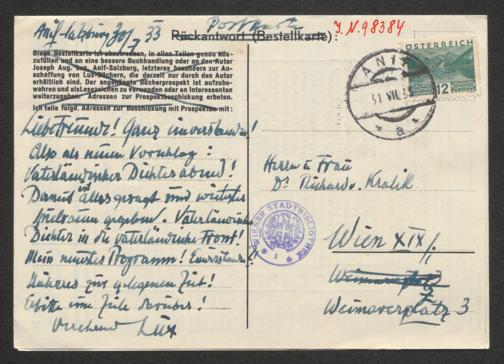 Anif-Salzburg 30/7 33
Postkarte
J.N. 98384
Rückantwort (Bestellkarte):
Diese Bestellkarte ist abzutrennen, in allen Teilen genau aus-
zufüllen und an eine bessere Buchhandlung oder an den Autor
Joseph Aug. Lux, Anif-Salzburg, letzteres besonders zur An-
schaffung von Lux-Büchern, die derzeit nur durch den Autor
erhältlich sind. Der angehängte Bücherprospekt ist aufzube-
wahren und als Lesezeichen zu verwenden oder an Interessenten
weiterzugeben. Adressen zur Prospektverschickung erbeten.
Ich teile folg. Adressen zur Beschickung mit Prospekten mit:
ANIF
31. VII. 33
a
ÖSTERREICH
12
Liebe Freunde! Ganz einverstanden!
Also als neuer Vorschlag:
Vaterländischer Dichterabend!
Damit ist alles gesagt und
gegeben. Vaterländische
Dichter in die vaterländische Front!
Mein neuestes Programm! Einverstanden?
Näheres zur gelegenen Zeit!
Erbitte eine Zeile darüber!
Lux
WIENER STADTBIBLIOTHEK
Herrn u Frau
Dr Richard v. Kralik
Wien XIX/1
Weimarerplatz 3